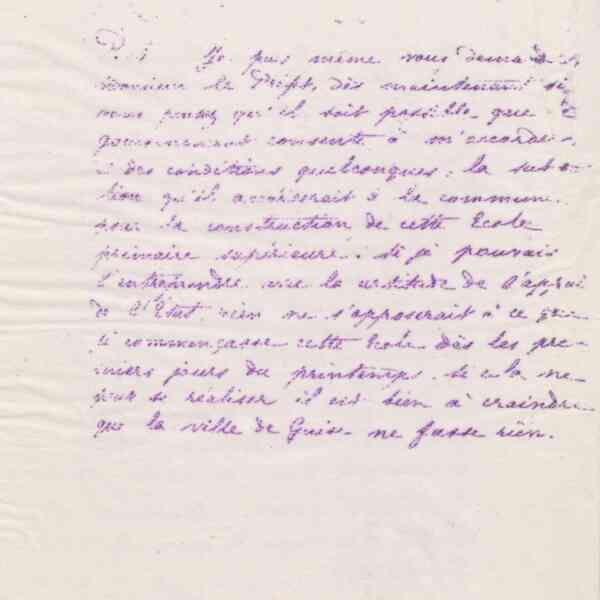 puis même vous demander,
monsieur le Préfet, dès maintenant si
vous pensez qu'il soit possible que
gouvernement consente à m'accorder
à des conditions quelconques, la subven-
tion qu'il accorderait à la commune
pour la construction de cette École
primaire supérieure. Si je pouvais
l'entreprendre avec la certitude de l'appui
de l'État, rien ne s'opposerait à ce que
je commençasse cette École dès les pre-
miers jours du printemps. Si cela ne
peut se réaliser il est bien à craindre
que la ville de Guise ne fasse rien.